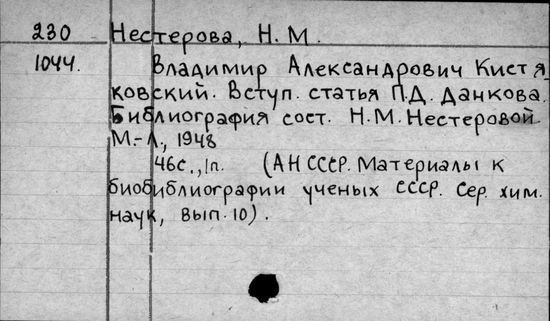 230 Нестерова, Н.М.
1044. Владимир Александрович Кистя
ковский. Вступ. статья П.Д. Данкова.
Библиография сост. Н.М. Нестеровой.
М.-Л., 1948
46с., 1п. (АН СССР. Материалы к
биобиблиографии ученых СССР. Сер. хим.
наук, вып. 10).